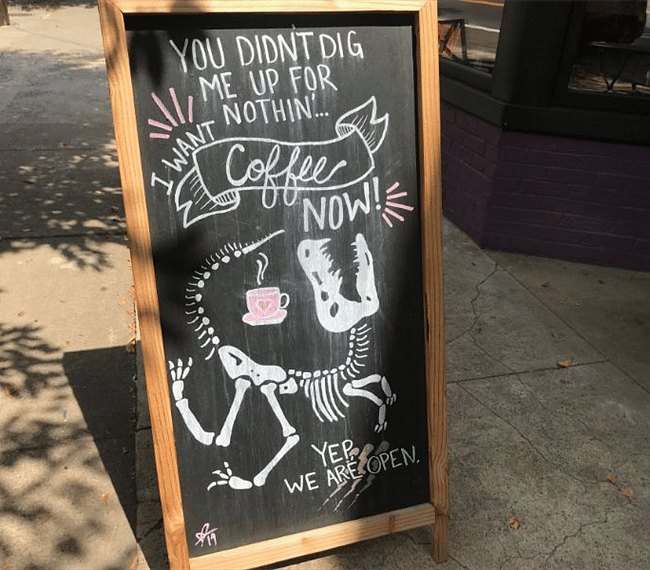 YOU DIDN'T DIG
ME UP FOR
NOTHIN'...
I WANT
Coffee
NOW!
YEP,
WE ARE OPEN.
19